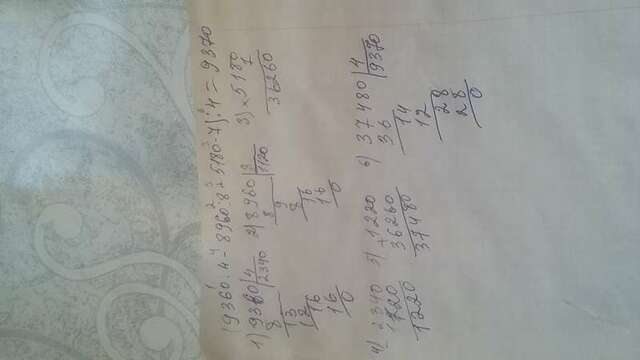 (9360:4-8960:8+5180·7):4=9370
1) 9360 4 2) 8960 8 3) × 5180
8 2340 8 1120 7
13 9 36260
12 8
16 16
16 16
0 0
4) - 2340 5) + 1220 6) 37480 4
1120 36260 36 9370
1220 37480 14
12
28
28
0